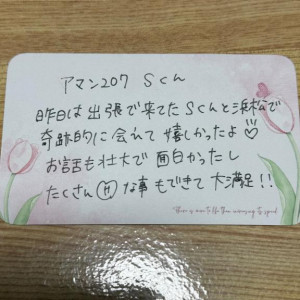 アマン207 Sくん
昨日は出張で来てたSくんと浜松で
奇跡的に会えて嬉しかったよ♡
お話も壮大で面白かったし
たくさんⒽな事もできて大満足!!
There is more to life than increasing its speed